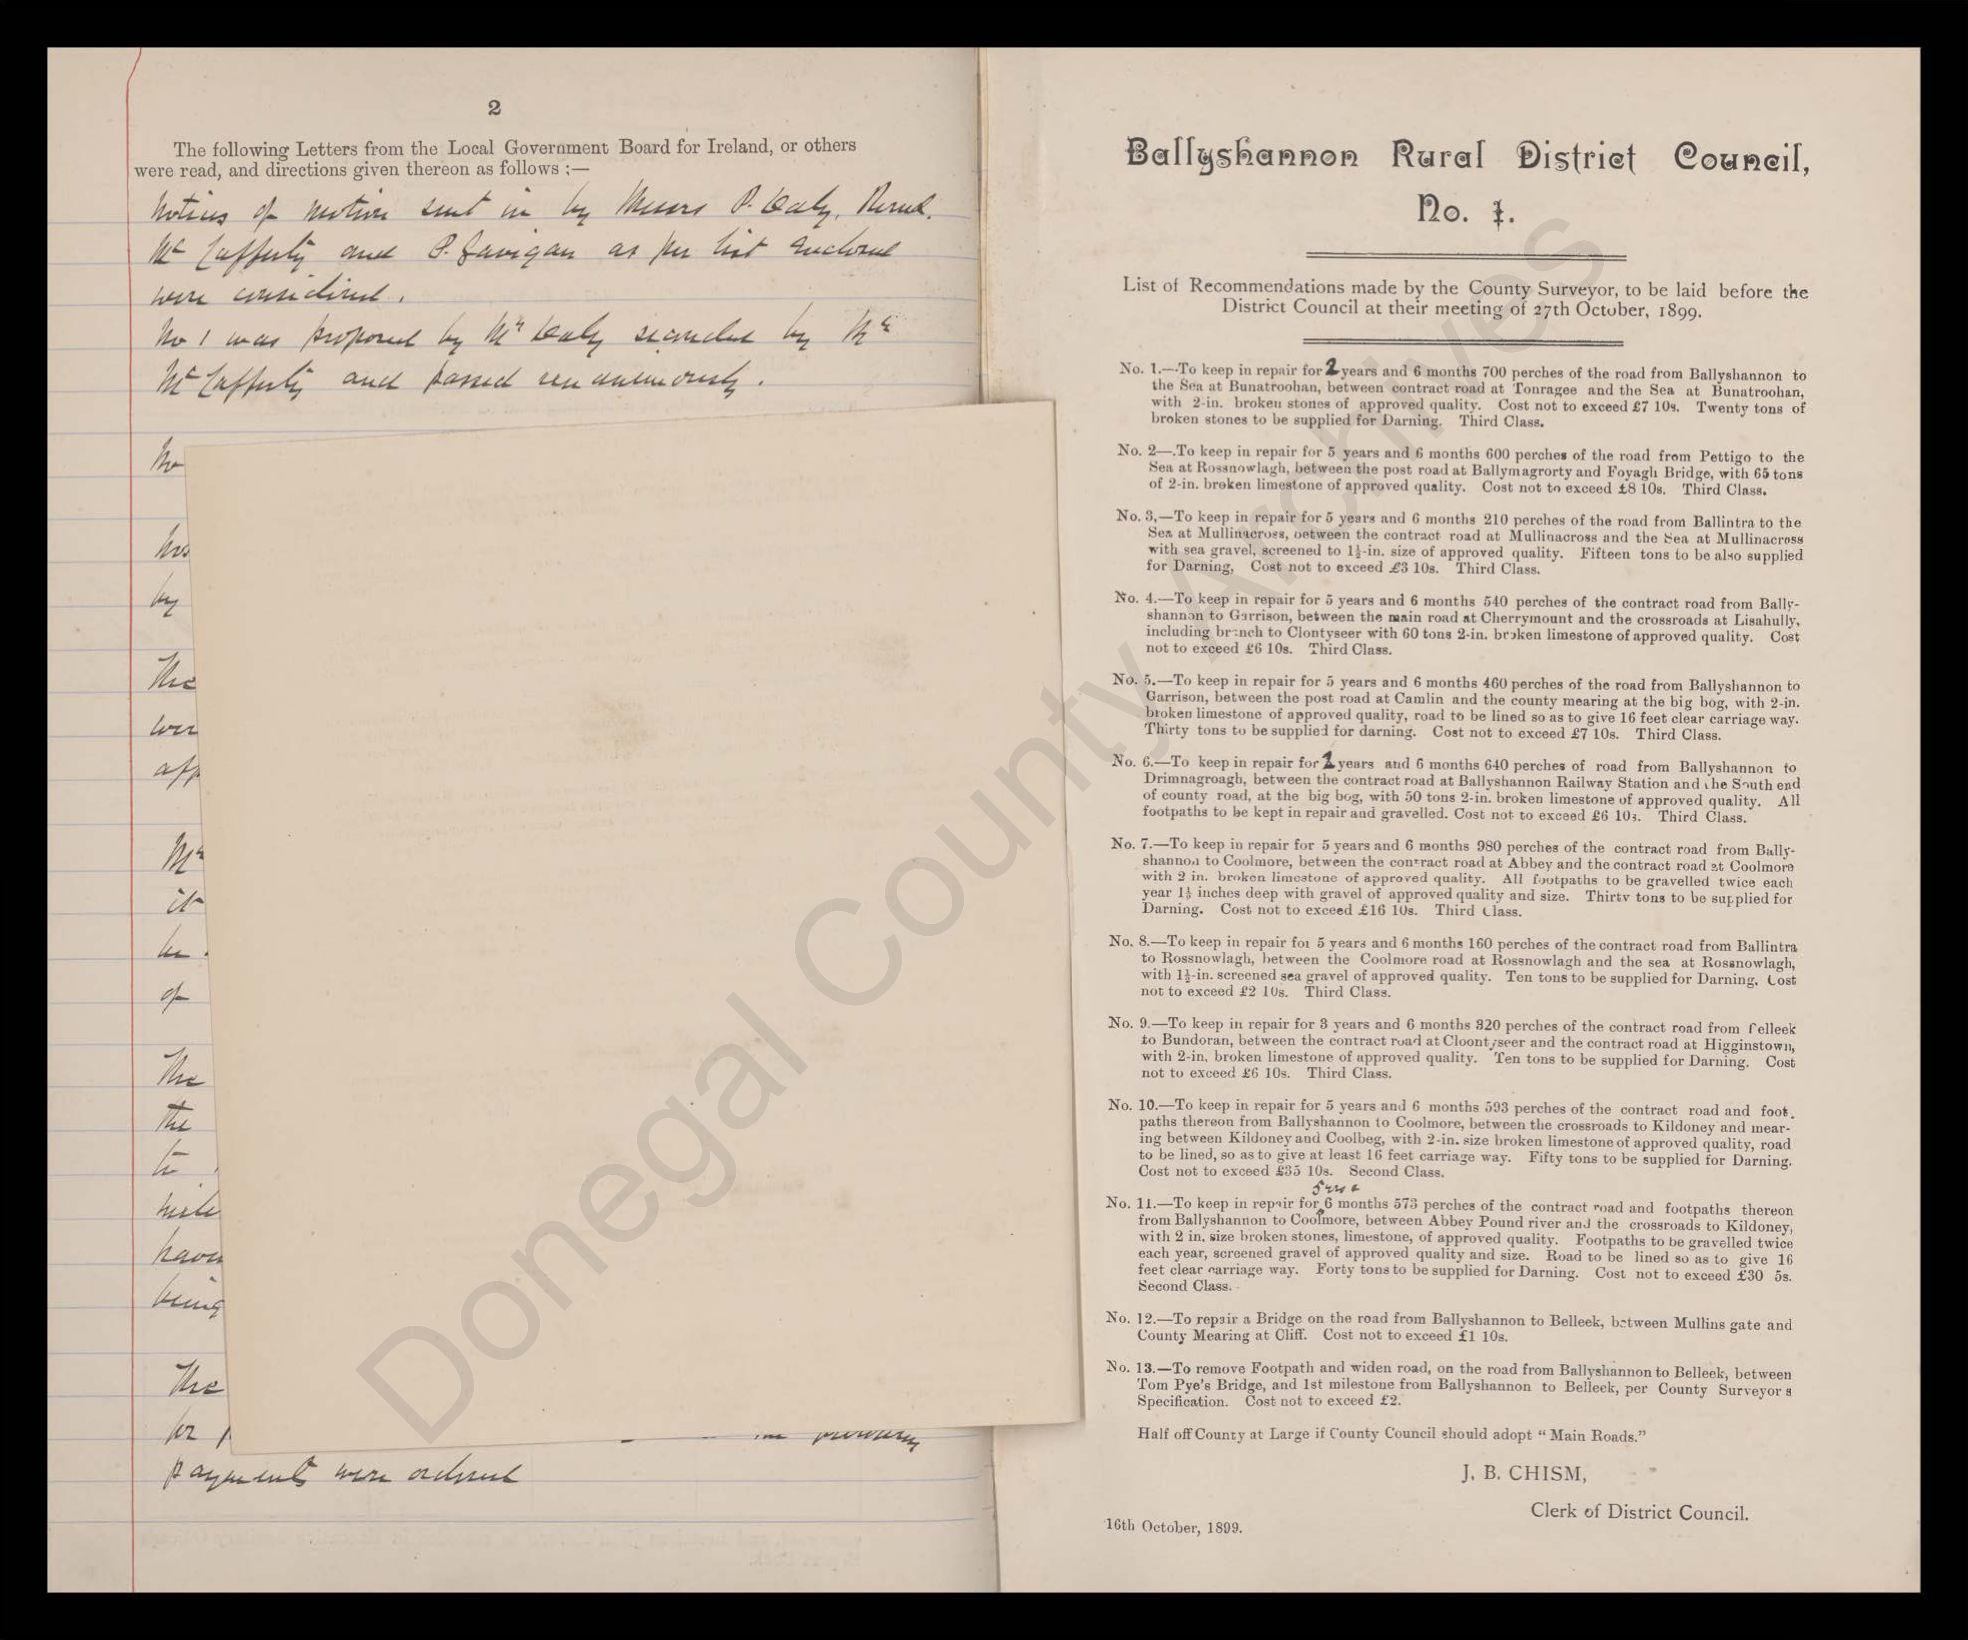 2
The following Letters from the Local Government Board for Ireland, or others
were read, and directions given thereon as follows :—
Notices of motion sent in by Messrs P. Daly,
McCafferty and P. Gavigan as per list enclosed
were considered.
No 1 was proposed by Mr Daly seconded by Mr
McCafferty and passed unanimously.
No
by
The
wer
app
Mr
it
be
of
The
the
to
mile
havi
being
The
for
payments were ordered
Ballyshannon Rural District Council,
No. 1.
List of Recommendations made by the County Surveyor, to be laid before the
District Council at their meeting of 27th October, 1899.
No. 1.—To keep in repair for 2 years and 6 months 700 perches of the road from Ballyshannon to
the Sea at Bunatroohan, between contract road at Tonragee and the Sea at Bunatroohan,
with 2-in. broken stones of approved quality. Cost not to exceed £7 10s. Twenty tons of
broken stones to be supplied for Darning. Third Class.
No. 2—.To keep in repair for 5 years and 6 months 600 perches of the road from Pettigo to the
Sea at Rossnowlagh, between the post road at Ballymagrorty and Foyagh Bridge, with 65 tons
of 2-in. broken limestone of approved quality. Cost not to exceed £8 10s. Third Class.
No. 3,—To keep in repair for 5 years and 6 months 210 perches of the road from Ballintra to the
Sea at Mullinacross, between the contract road at Mullinacross and the Sea at Mullinacross
with sea gravel, screened to 1½-in. size of approved quality. Fifteen tons to be also supplied
for Darning, Cost not to exceed £3 10s. Third Class.
No. 4.—To keep in repair for 5 years and 6 months 540 perches of the contract road from Bally-
shannon to Garrison, between the main road at Cherrymount and the crossroads at Lisahully,
including branch to Clontyseer with 60 tons 2-in. broken limestone of approved quality. Cost
not to exceed £6 10s. Third Class.
No. 5.—To keep in repair for 5 years and 6 months 460 perches of the road from Ballyshannon to
Garrison, between the post road at Camlin and the county mearing at the big bog, with 2-in.
broken limestone of approved quality, road to be lined so as to give 16 feet clear carriage way.
Thirty tons to be supplied for darning. Cost not to exceed £7 10s. Third Class.
No. 6.—To keep in repair for 2 years and 6 months 640 perches of road from Ballyshannon to
Drimnagroagh, between the contract road at Ballyshannon Railway Station and the South end
of county road, at the big bog, with 50 tons 2-in. broken limestone of approved quality. All
footpaths to be kept in repair and gravelled. Cost not to exceed £6 10s. Third Class.
No. 7.—To keep in repair for 5 years and 6 months 980 perches of the contract road from Bally-
shannon to Coolmore, between the contract road at Abbey and the contract road at Coolmore
with 2 in. broken limestone of approved quality. All footpaths to be gravelled twice each
year 1½ inches deep with gravel of approved quality and size. Thirty tons to be supplied for
Darning. Cost not to exceed £16 10s. Third Class.
No. 8.—To keep in repair for 5 years and 6 months 160 perches of the contract road from Ballintra
to Rossnowlagh, between the Coolmore road at Rossnowlagh and the sea at Rossnowlagh,
with 1½-in. screened sea gravel of approved quality. Ten tons to be supplied for Darning. Cost
not to exceed £2 10s. Third Class.
No. 9.—To keep in repair for 3 years and 6 months 320 perches of the contract road from Belleek
to Bundoran, between the contract road at Cloontyseer and the contract road at Higginstown,
with 2-in. broken limestone of approved quality. Ten tons to be supplied for Darning. Cost
not to exceed £6 10s. Third Class.
No. 10.—To keep in repair for 5 years and 6 months 593 perches of the contract road and foot-
paths thereon from Ballyshannon to Coolmore, between the crossroads to Kildoney and mear-
ing between Kildoney and Coolbeg, with 2-in. size broken limestone of approved quality, road
to be lined, so as to give at least 16 feet carriage way. Fifty tons to be supplied for Darning.
Cost not to exceed £35 10s. Second Class.
No. 11.—To keep in repair for 6 months 573 perches of the contract road and footpaths thereon
from Ballyshannon to Coolmore, between Abbey Pound river and the crossroads to Kildoney,
with 2 in. size broken stones, limestone, of approved quality. Footpaths to be gravelled twice
each year, screened gravel of approved quality and size. Road to be lined so as to give 16
feet clear carriage way. Forty tons to be supplied for Darning. Cost not to exceed £30 5s.
Second Class.
No. 12.—To repair a Bridge on the road from Ballyshannon to Belleek, between Mullins gate and
County Mearing at Cliff. Cost not to exceed £1 10s.
No. 13.—To remove Footpath and widen road, on the road from Ballyshannon to Belleek, between
Tom Pye's Bridge, and 1st milestone from Ballyshannon to Belleek, per County Surveyor s
Specification. Cost not to exceed £2.
Half off County at Large if County Council should adopt "Main Roads."
J. B. CHISM,
Clerk of District Council.
16th October, 1899.
Donegal County Archives